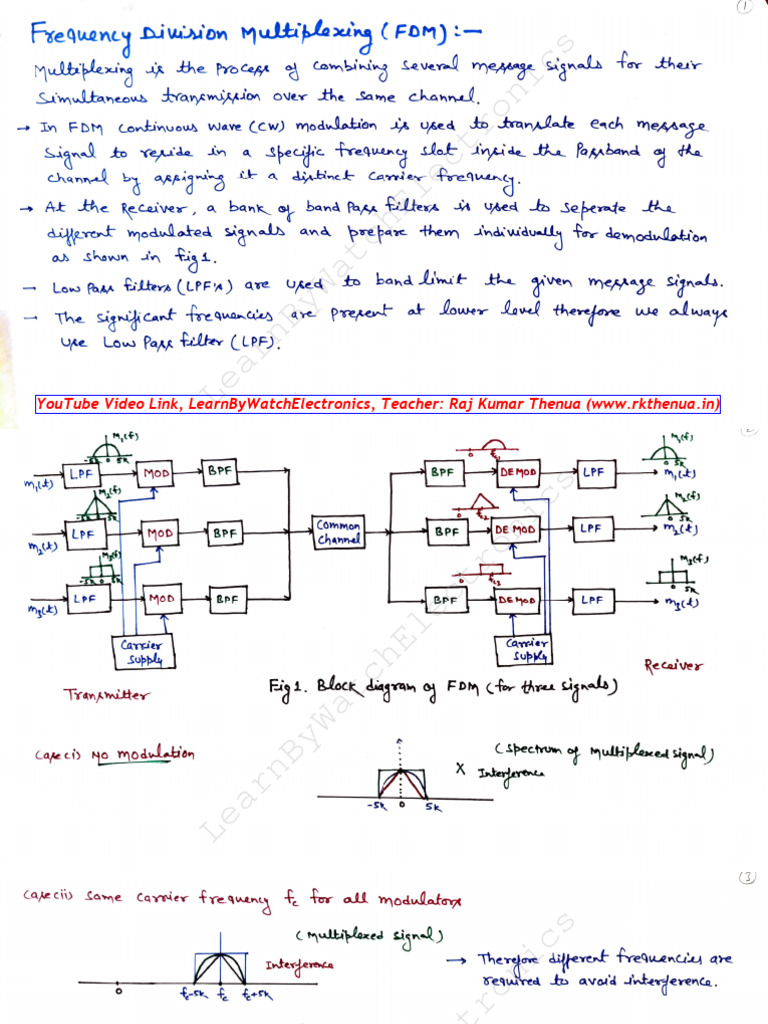 1
Frequency Division Multiplexing (FDM) :-
Multiplexing is the process of combining several message signals for their
simultaneous transmission over the same channel.
→ In FDM continuous wave (CW) modulation is used to translate each message
signal to reside in a specific frequency slot inside the Passband of the
channel by assigning it a distinct carrier frequency.
→ At the Receiver, a bank of band Pass filters is used to seperate the
different modulated signals and prepare them individually for demodulation
as shown in fig 1.
- Low Pass filters (LPF's) are used to band limit the given message signals.
- The significant frequencies are present at lower level therefore we always
use Low Pass filter (LPF).
YouTube Video Link, LearnByWatchElectronics, Teacher: Raj Kumar Thenua (www.rkthenua.in)
2
M1(f)
-5k 0 5k
m1(t) LPF MOD BPF
M2(f)
-5k 0 5k
m2(t) LPF MOD BPF
M3(f)
-5k 0 5k
m3(t) LPF MOD BPF
Carrier
supply
Common
channel
0 fc1
BPF DEMOD LPF m1(t)
M1(f)
0 5k
0 fc2
BPF DEMOD LPF m2(t)
M2(f)
0 5k
0 fc3
BPF DEMOD LPF m3(t)
M3(f)
0 5k
Carrier
supply
Transmitter
Receiver
Fig 1. Block diagram of FDM (for three signals)
Case(i) No modulation
(Spectrum of Multiplexed signal)
X Interference
-5k 0 5k
3
Case(ii) Same Carrier frequency fc for all modulators
(Multiplexed Signal)
Interference
0 fc-5k fc fc+5k
→ Therefore different frequencies are
required to avoid interference.
LearnByWatchElectronics
LearnByWatchElectronics
tronics